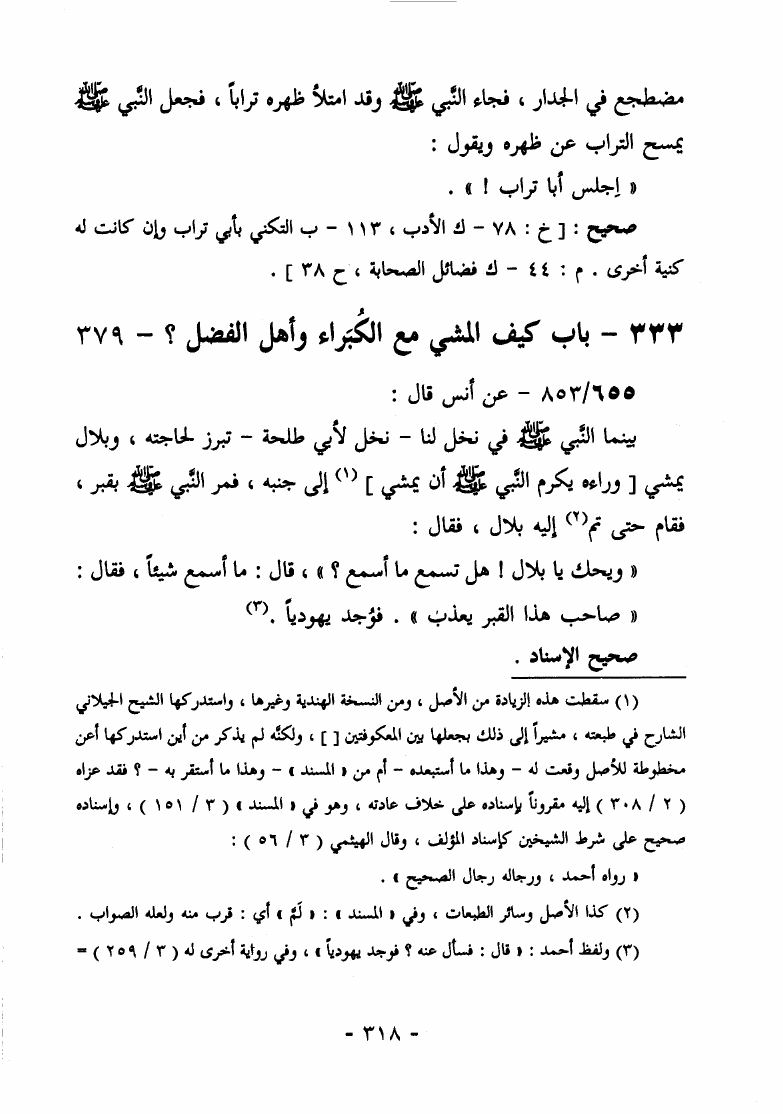 مضطجع في الجدار ، فجاء النَّبي ﷺ وقد امتلأ ظهره تراباً ، فجعل النَّبي ﷺ
يمسح التراب عن ظهره ويقول :
« اِجلس أبا تراب ! » .
صحيح : [ خ : ٧٨ – ك الأدب ، ١١٣ – ب التكني بأبي تراب وإن كانت له
كنية أخرى . م : ٤٤ – ك فضائل الصحابة ، ح ٣٨ ] .
٣٣٣ – باب كيف المشي مع الكُبَراء وأهل الفضل ؟ – ٣٧٩
٨٥٣/٦٥٥ – عن أنس قال :
بينما النبي ﷺ في نخل لنا – نخل لأبي طلحة – تبرز لحاجته ، وبلال
يمشي [ وراءه يكرم النَّبي ﷺ أن يمشي ] (١) إلى جنبه ، فمر النَّبي ﷺ بقبر ،
فقام حتى تم(٢) إليه بلال ، فقال :
« ويحك يا بلال ! هل تسمع ما أسمع ؟ » ، قال : ما أسمع شيئاً ، فقال :
« صاحب هذا القبر يعذب » . فوُجد يهودياً .(٣)
صحيح الإسناد .
(١) سقطت هذه الزيادة من الأصل ، ومن النسخة الهندية وغيرها ، واستدركها الشيخ الجيلاني
الشارح في طبعته ، مشيراً إلى ذلك بجعلها بين المعكوفتين [ ] ، ولكنَّه لم يذكر من أين استدركها أعن
مخطوطة للأصل وقعت له – وهذا ما أستبعده – أم من « المسند » – وهذا ما أستقر به – ؟ فقد عزاه
( ٢ / ٣٠٨ ) إليه مقروناً بإسناده على خلاف عادته ، وهو في « المسند » ( ٣ / ١٥١ ) ، وإسناده
صحيح على شرط الشيخين كإسناد المؤلف ، وقال الهيثمي ( ٣ / ٥٦ ) :
« رواه أحمد ، ورجاله رجال الصحيح » .
(٢) كذا الأصل وسائر الطبعات ، وفي « المسند » : « لَمَّ » أي : قرب منه ولعله الصواب .
(٣) ولفظ أحمد : « قال : فسأل عنه ؟ فوجد يهودياً » ، وفي رواية أخرى له ( ٣ / ٢٥٩ ) =
- ٣١٨ -